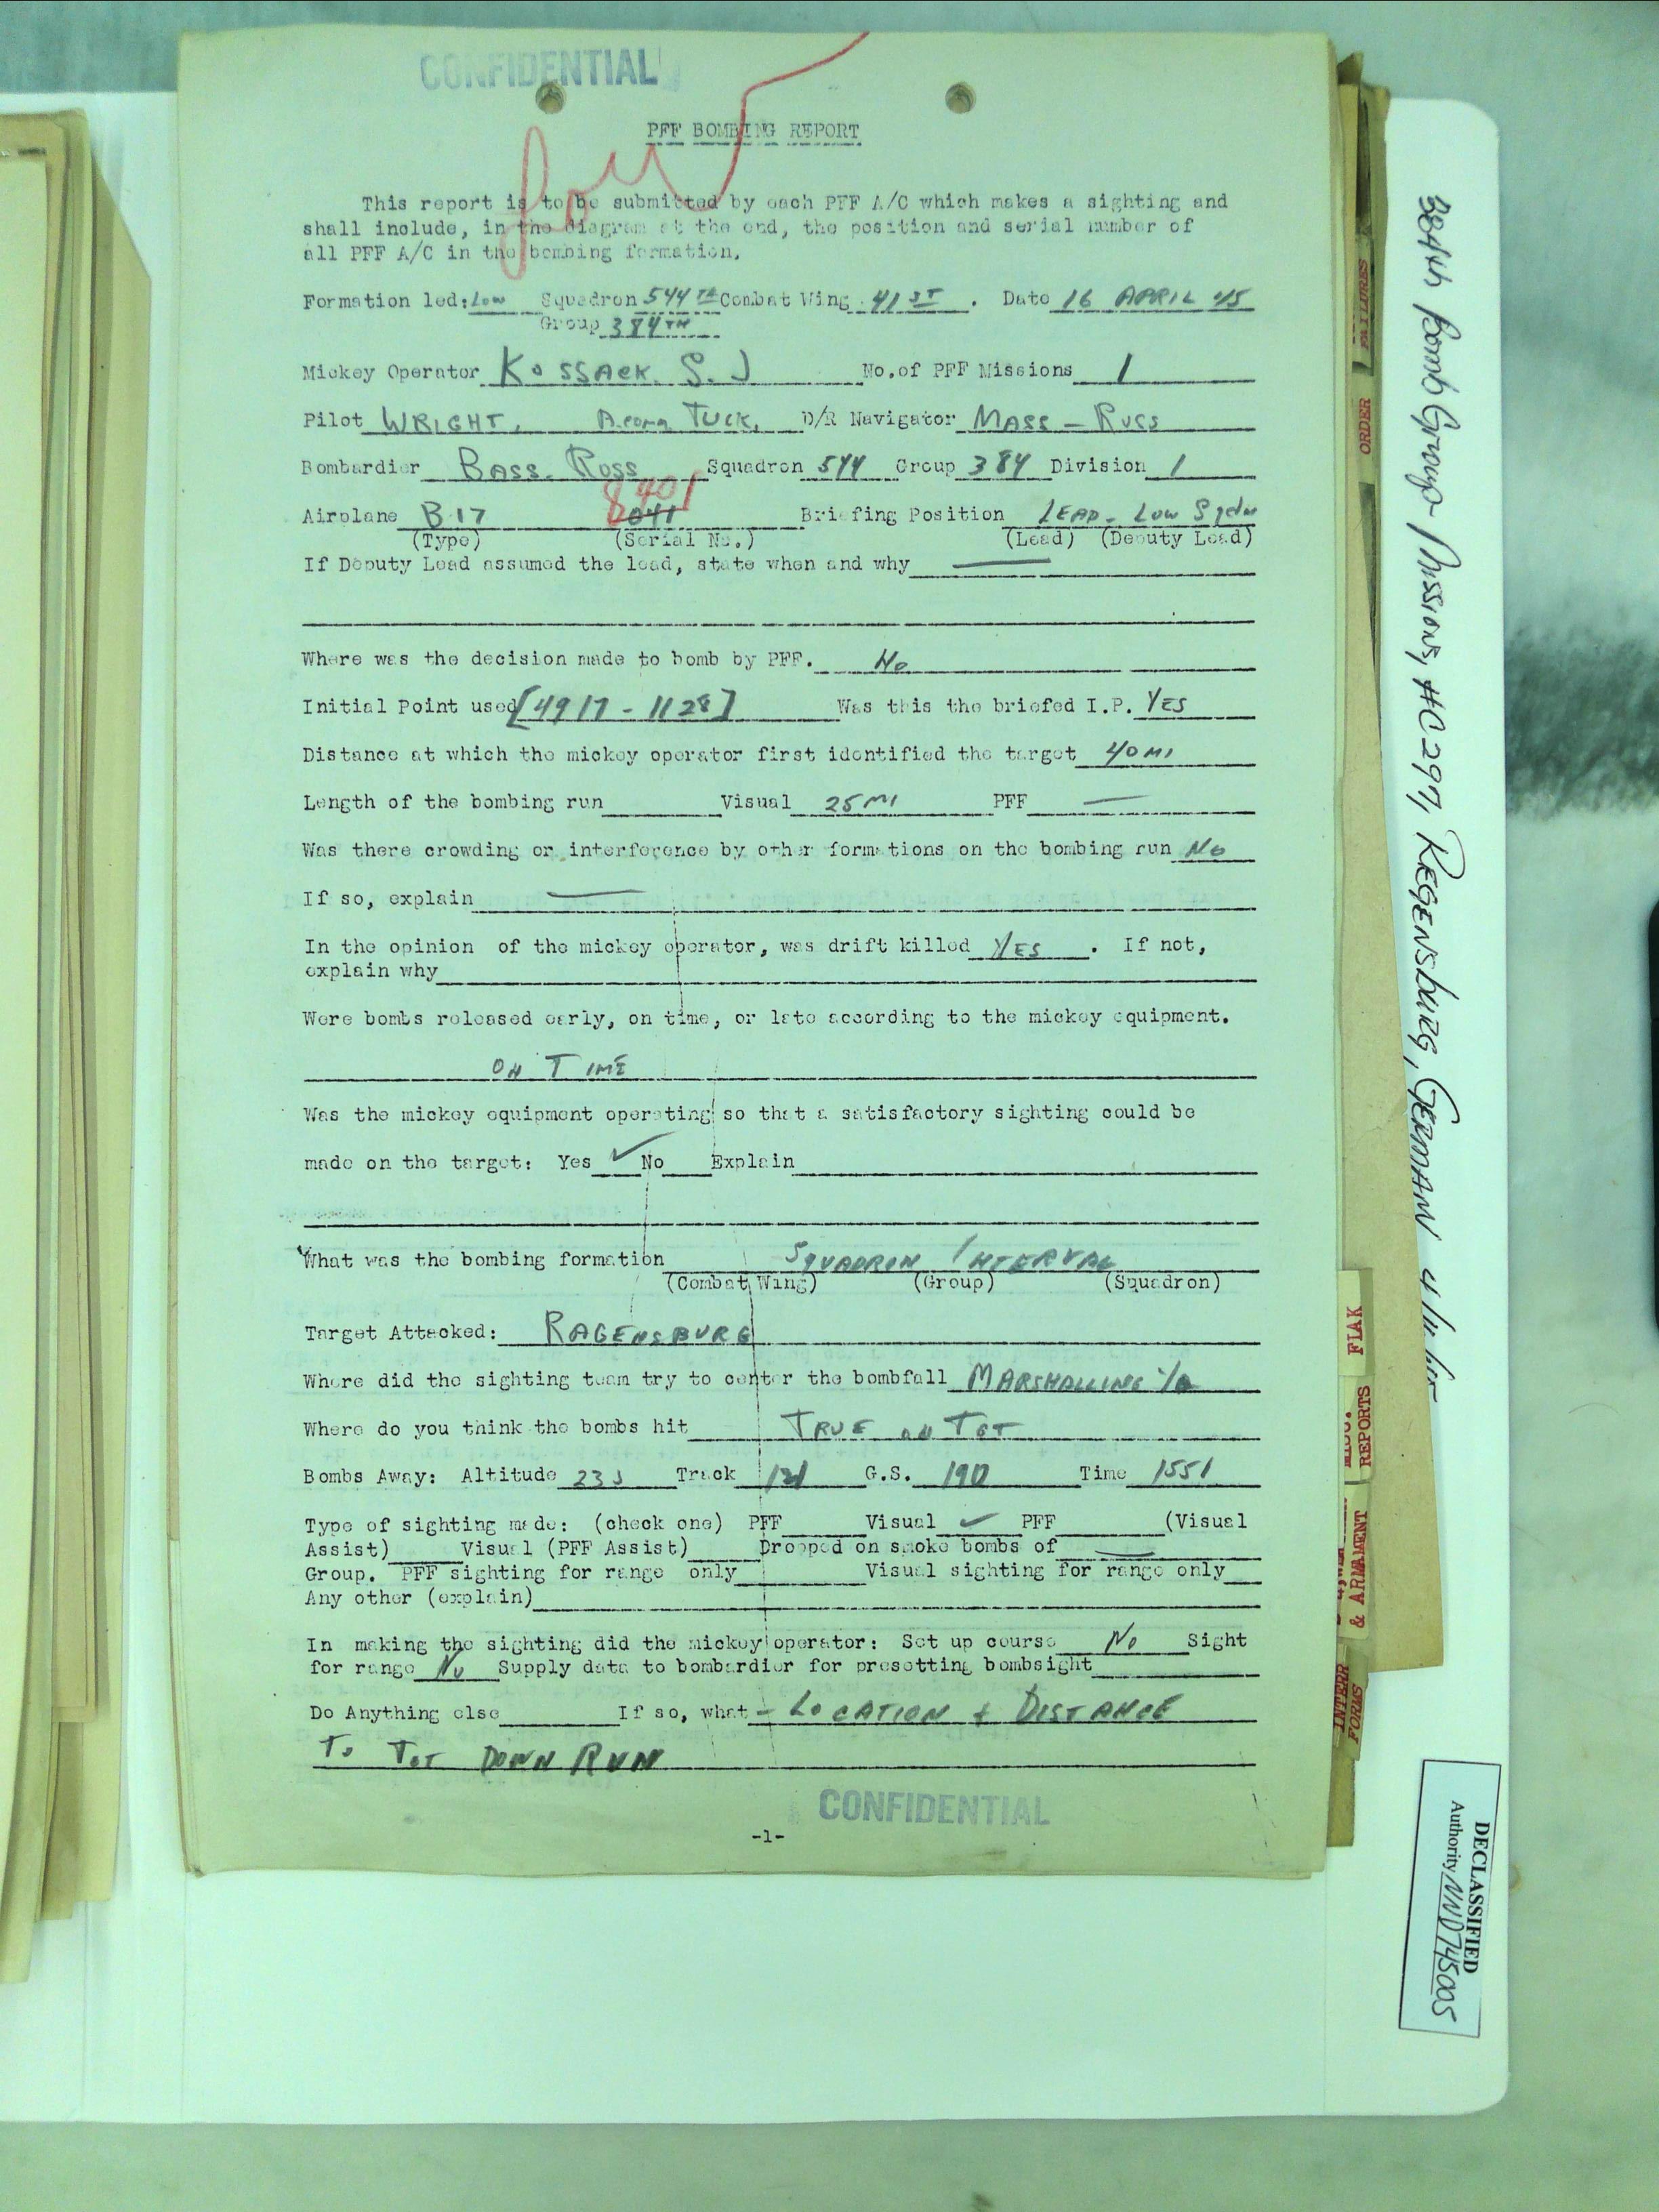 CONFIDENTIAL
low
PFF BOMBING REPORT
This report is to be submitted by each PFF A/C which makes a sighting and
shall include, in the diagram at the end, the position and serial number of
all PFF A/C in the bombing formation.
Formation led: Low Squadron 544TH Combat Wing 41ST. Date 16 APRIL 45
Group 384TH
Mickey Operator KOSSACK S. J No. of PFF Missions 1
Pilot WRIGHT, TUCK, D/R Navigator MASS - RUSS
Bombardier BASS. ROSS Squadron 544 Group 384 Division 1
Airplane B 17 8401 Briefing Position LEAD - LOW Sqdn
(Type) (Serial No.) (Lead) (Deputy Lead)
If Deputy Lead assumed the lead, state when and why —
Where was the decision made to bomb by PFF. No
Initial Point used [4917 - 1128] Was this the briefed I.P. YES
Distance at which the mickey operator first identified the target 40 MI
Length of the bombing run Visual 25 MI PFF —
Was there crowding or interference by other formations on the bombing run No
If so, explain —
In the opinion of the mickey operator, was drift killed YES. If not,
explain why
Were bombs released early, on time, or late according to the mickey equipment.
ON TIME
Was the mickey equipment operating so that a satisfactory sighting could be
made on the target: Yes ✓ No Explain
What was the bombing formation SQUADRON INTERVAL
(Combat Wing) (Group) (Squadron)
Target Attacked: RAGENSBURG
Where did the sighting team try to center the bombfall MARSHALLING
Where do you think the bombs hit TRUE ON TGT
Bombs Away: Altitude Track 121 G.S. 190 Time 1551
Type of sighting made: (check one) PFF Visual ✓ PFF (Visual
Assist) Visual (PFF Assist) Dropped on smoke bombs of —
Group. PFF sighting for range only Visual sighting for range only
Any other (explain)
In making the sighting did the mickey operator: Set up course No Sight
for range No Supply data to bombardier for presetting bombsight
Do Anything else If so, what - LOCATION + DISTANCE
TO TGT DOWN RUN
CONFIDENTIAL
-1-
384th Bomb Group Missions, #C 297, REGENSBURG, GERMAN
FAILURES
ORDER
FLAK
MISC. REPORTS
& ARMAMENT
INTERR FORMS
DECLASSIFIED
Authority NND745005